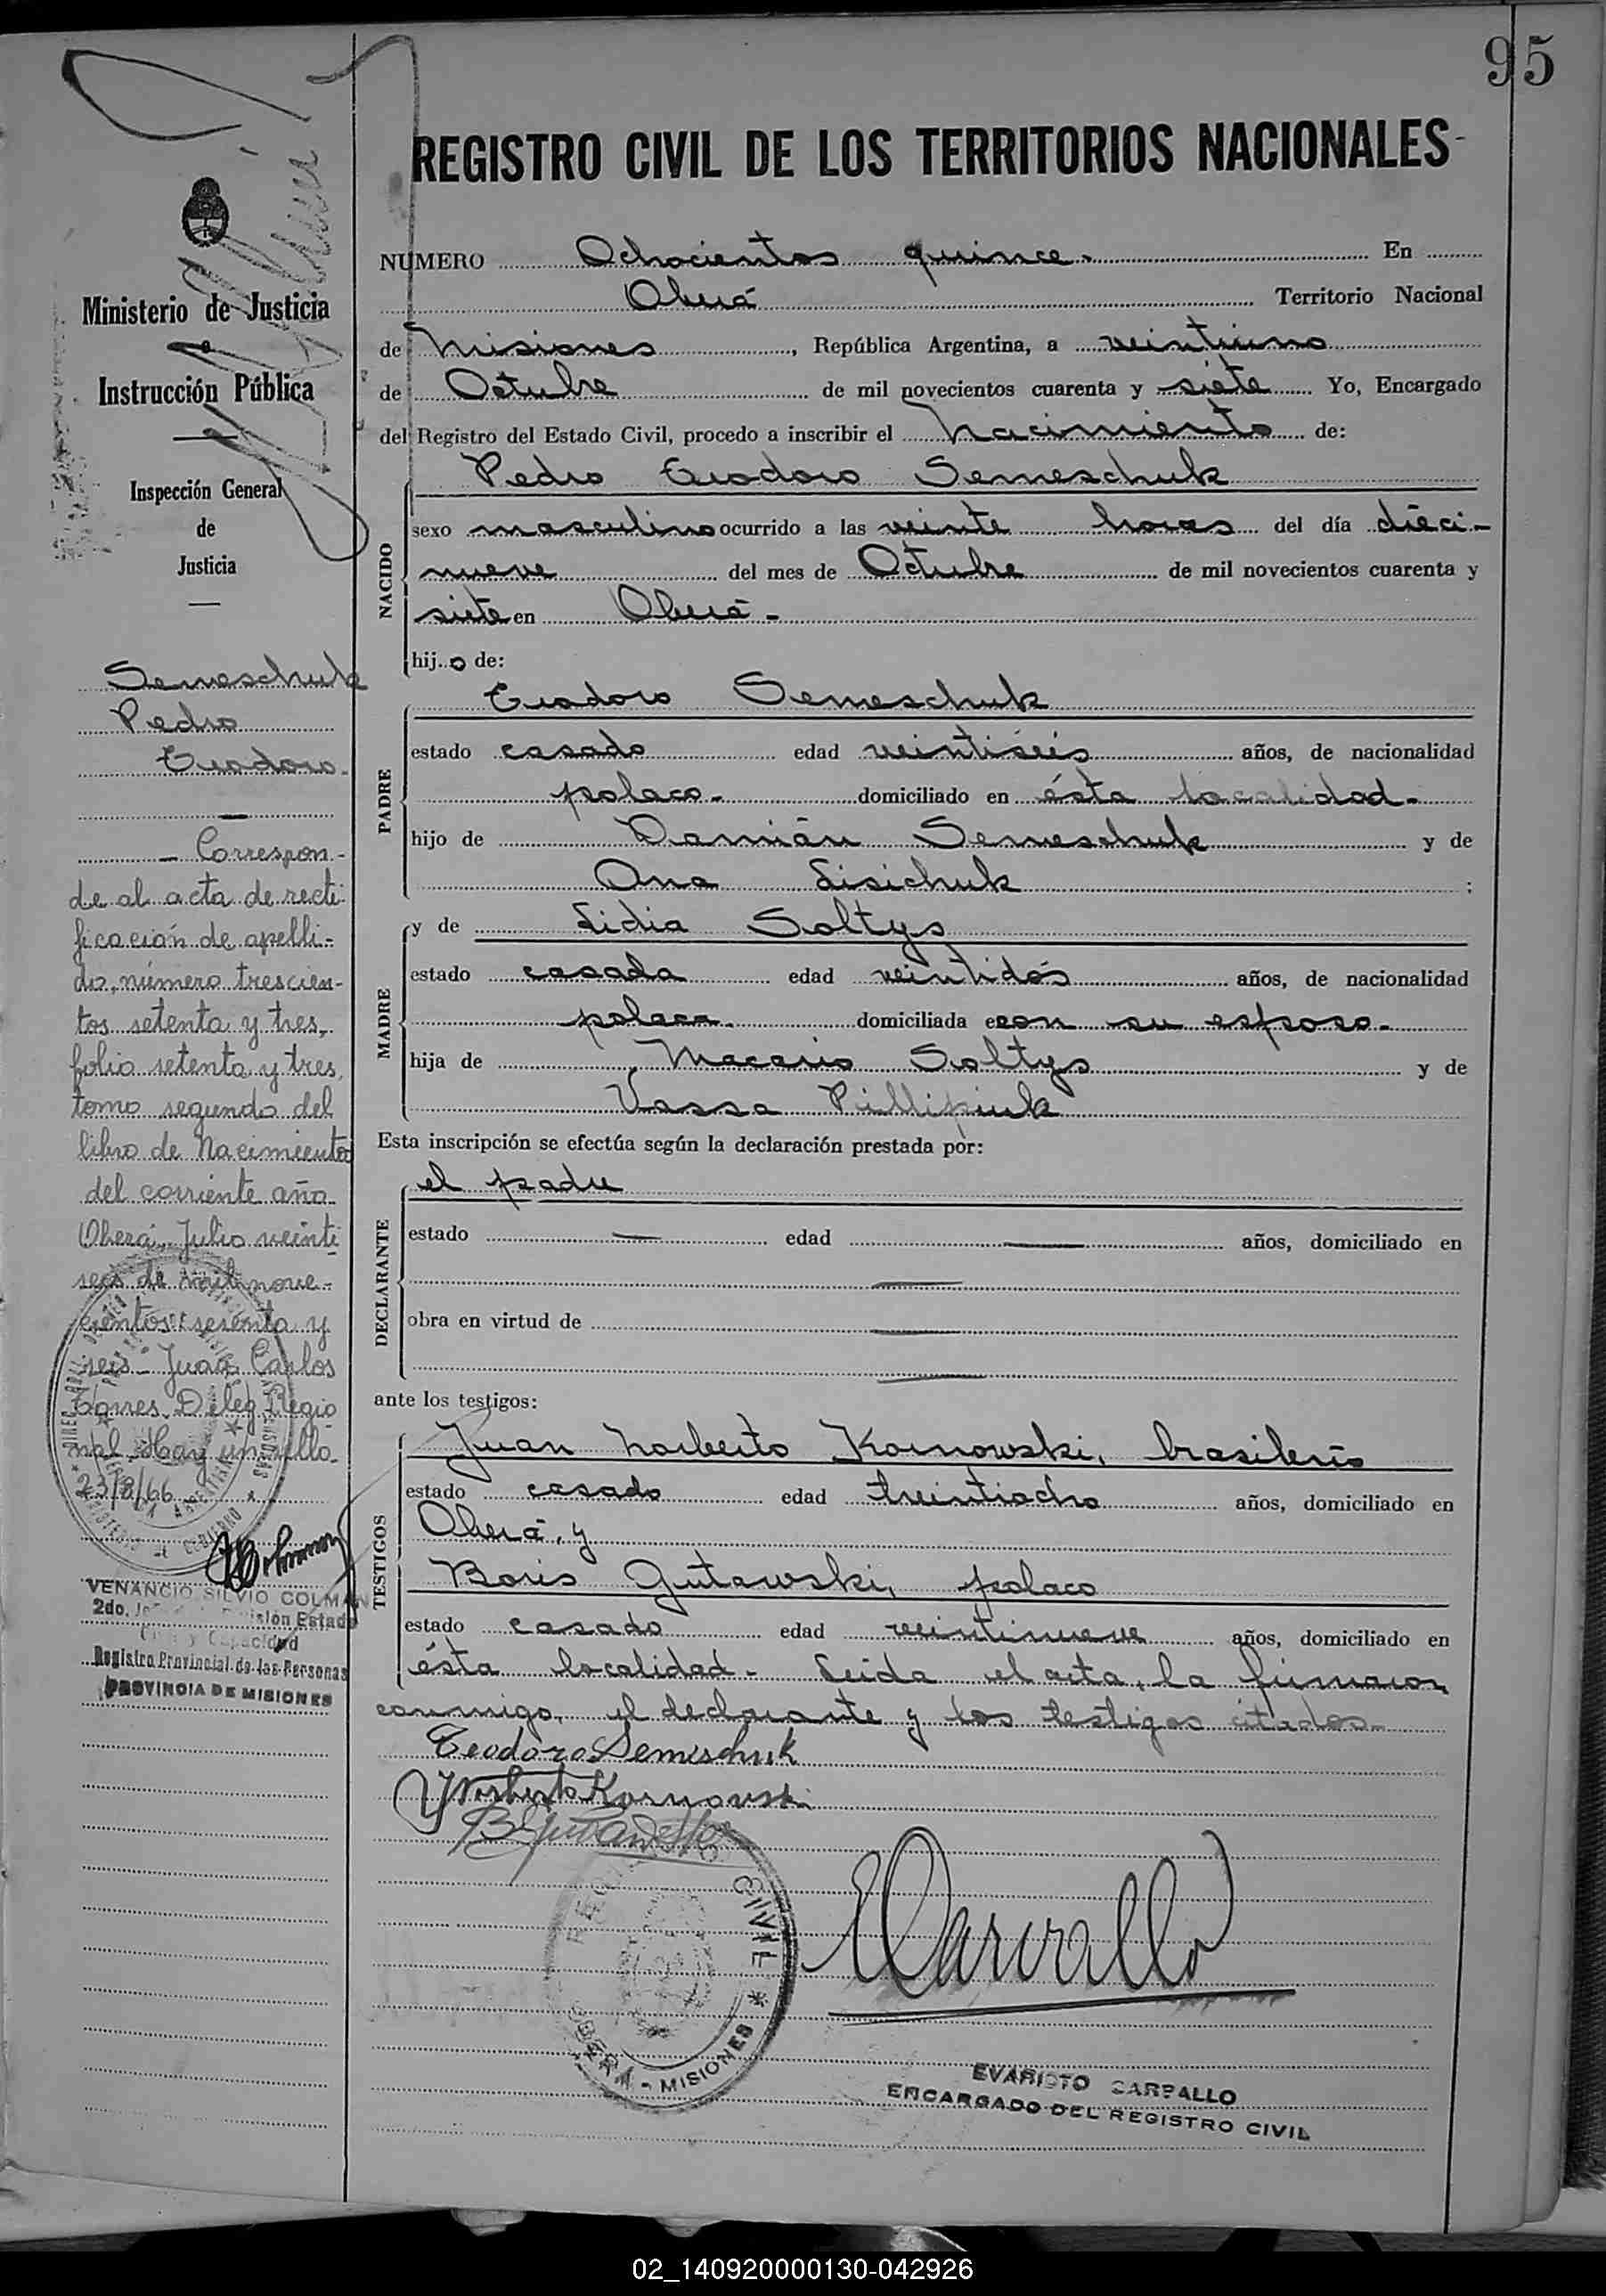 95
REGISTRO CIVIL DE LOS TERRITORIOS NACIONALES
NUMERO Ochocientos quince. En
Oberá Territorio Nacional
de Misiones, República Argentina, a veintiuno
de Octubre de mil novecientos cuarenta y siete Yo, Encargado
del Registro del Estado Civil, procedo a inscribir el Nacimiento de:
NACIDO
Pedro Teodoro Semeschuk
sexo masculino ocurrido a las veinte horas del día dieci-
nueve del mes de Octubre de mil novecientos cuarenta y
siete en Oberá -
hij o de:
PADRE
Teodoro Semeschuk
estado casado edad veintiséis años, de nacionalidad
polaco - domiciliado en ésta localidad -
hijo de Damián Semeschuk y de
Ana Lisichuk ;
MADRE
y de Lidia Soltys
estado casada edad veintidós años, de nacionalidad
polaca. domiciliada con su esposo -
hija de Macario Soltys y de
Vassa Pillipiuk
Esta inscripción se efectúa según la declaración prestada por:
DECLARANTE
el padre
estado — edad — años, domiciliado en
—
obra en virtud de —
—
ante los testigos:
TESTIGOS
Juan Norberto Kornowski, brasileño
estado casado edad treintiocho años, domiciliado en
Oberá, y
Boris Gutawski, polaco
estado casado edad veintinueve años, domiciliado en
ésta localidad - Leida el acta, la firmaron
conmigo, el declarante y los testigos citados -
Teodoro Semeschuk
JNorberto Kornowski
REGISTRO CIVIL * OBERÁ - MISIONES
ECarvallo
EVARISTO CARVALLO
ENCARGADO DEL REGISTRO CIVIL
Ministerio de Justicia
e
Instrucción Pública
Inspección General
de
Justicia
Semeschuk
Pedro
Teodoro -
- Correspon-
de al acta de recti-
ficación de apelli-
do, número trescien-
tos setenta y tres,
folio setenta y tres,
tomo segundo del
libro de Nacimientos
del corriente año
Oberá, Julio veinti
seis de mil nove-
cientos sesenta y
seis - Juan Carlos
Torres Deleg Regio
nal Hay un sello -
23/8/66
VENANCIO SILVIO COLMAN
2do. Jefe de División Estado
Civil y Capacidad
Registro Provincial de las Personas
PROVINCIA DE MISIONES
02_140920000130-042926